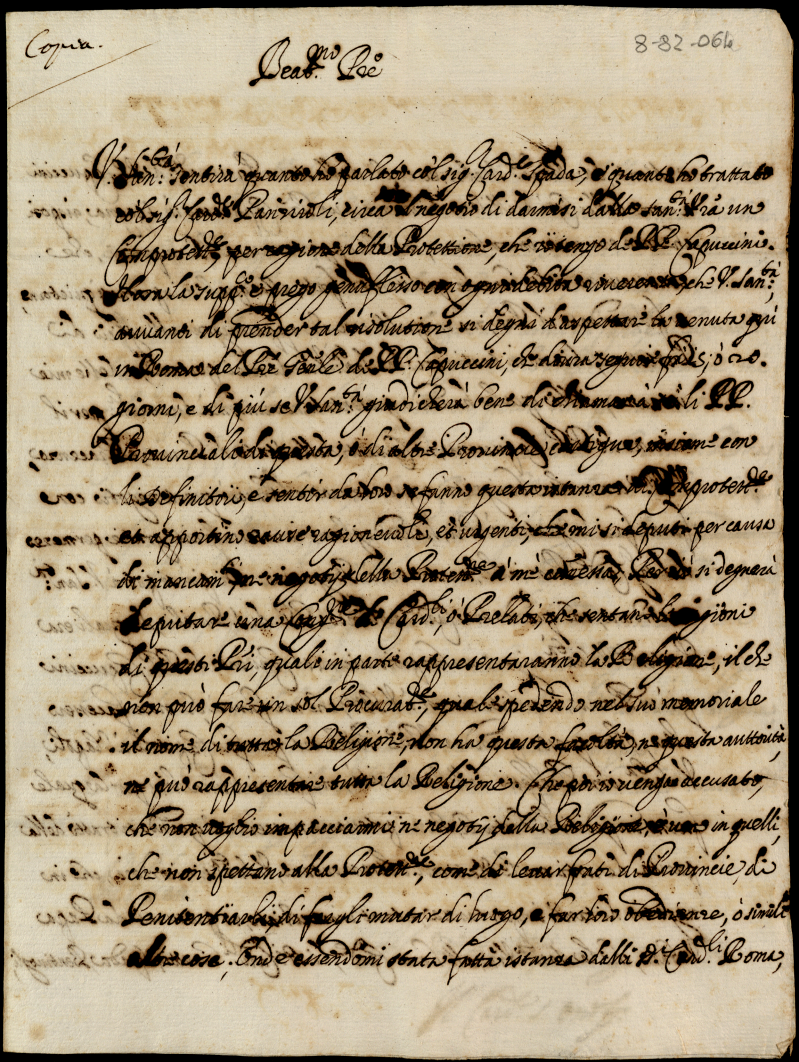 Copia.
8-82-064
Beat.mo Pre
V. San.tà sentirà quanto hò parlato col sig.r Card.le Spada, e quanto hò trattato
col sig.r Card.le Panziroli, circa il negotio di darmisi dalla San.tà Vra un
Comprotett.re, per ragione della Protettione, che tengo de PP. Capuccini.
Hora la supp.co e prego genuflesso con ogni debita riverenza, che V. San.tà,
avvanti di prender tal risolutione si degni d'aspettare la venuta quì
in Roma del Pre Gen̄le de PP. Capuccini, che dovrà seguire frà 15, ò 20.
giorni, e di più se V. San.tà giudicherà bene di chiamar à sè li PP.
Provinciali di questa, ò di altre Provincie contigue, insieme con
li Definitori, e sentir da loro se fanno questa istanza di Comprotett.re
et apportino cause ragionevoli, et urgenti, che mi si deputi per causa
di mancam.ti ne negotij della Protett.ne à me commessa, Perciò si degnerà
deputare una Cong.ne de Card.li, ò Prelati, che sentano le ragioni
di questi Pri, quali in parte rappresentaranno la Religione, il che
non può fare un sol Procurat.re, qual spedendo nel suo memoriale
il nome di tutta la Religione, non ha questa facoltà, ne questa auttorità,
ne può rappresentare tutta la Religione. Che poi io venga accusato,
che non voglio impacciarmi ne negotij della Religione è vero in quelli,
che non spettano alla Protett.ne, come di levar frati di Provincie, di
Penitentiarli, di fargli mutar di luogo, e far loro obedienze, ò simili
altre cose. Onde essendomi stata fatta istanza dalli SS.ri Card.li Roma,